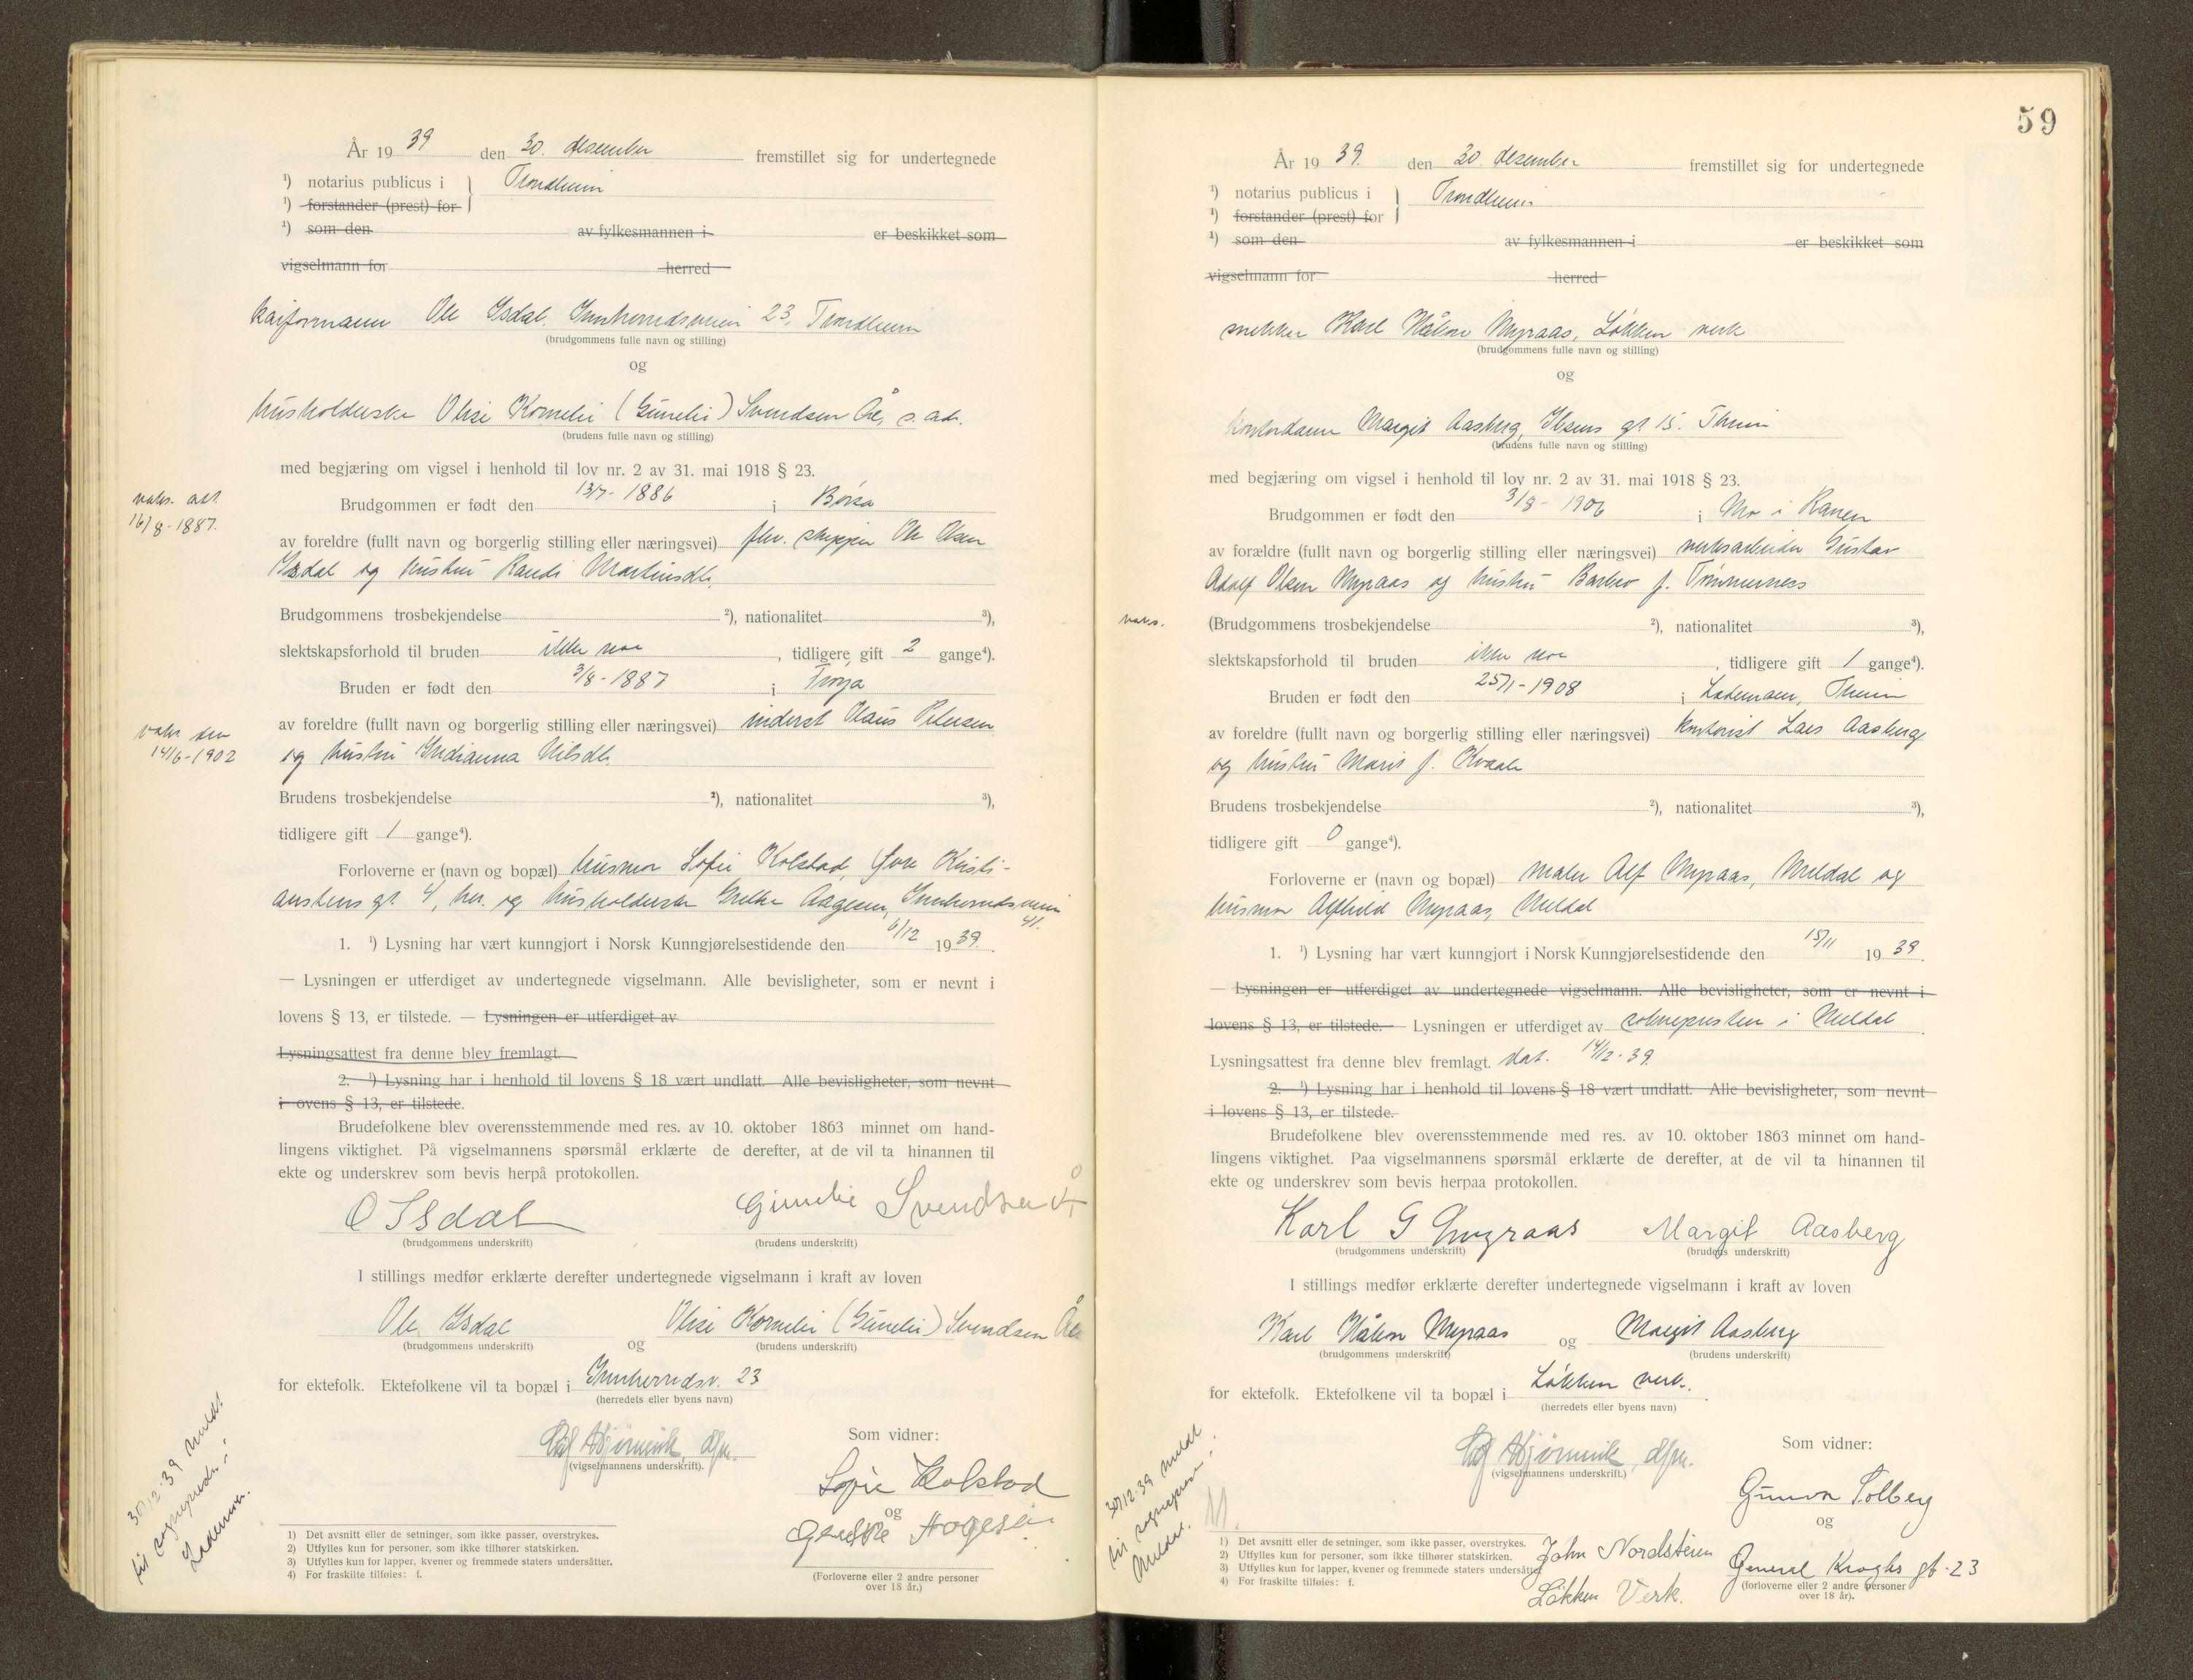 År 19 39 den 30. desember fremstillet sig for undertegnede
¹) notarius publicus i Trondheim
¹) forstander (prest) for
¹) som den av fylkesmannen i er beskikket som
vigselmann for herred
kaiformann Ole Isdal, Innherredsveien 23, Trondheim
(brudgommens fulle navn og stilling)
og
husholderske Olise Kornelie (Gunelie) Svendsen Åe, s. adr.
(brudens fulle navn og stilling)
med begjæring om vigsel i henhold til lov nr. 2 av 31. mai 1918 § 23.
vaks. att.
16/8-1887.
Brudgommen er født den 13/7-1886 i Børsa
av foreldre (fullt navn og borgerlig stilling eller næringsvei) skipper Ole Olsen
Isdal og hustru Randi Martinsdtr.
Brudgommens trosbekjendelse ²), nationalitet ³),
slektskapsforhold til bruden ikke noe, tidligere gift 2 gange⁴).
Bruden er født den 3/8-1887 i Frøya
av foreldre (fullt navn og borgerlig stilling eller næringsvei) inderst Olaus Petersen
vaks. den
14/6-1902
og hustru Indianna Nilsdtr.
Brudens trosbekjendelse ²), nationalitet ³),
tidligere gift 1 gange⁴).
Forloverne er (navn og bopæl) husmor Sofie Kolstad, Kristi-
anstens gt. 4, her. og husholderske Aagesen, Innherredsveien
41.
1. ¹) Lysning har vært kunngjort i Norsk Kunngjørelsestidende den 6/12 1939.
— Lysningen er utferdiget av undertegnede vigselmann. Alle bevisligheter, som er nevnt i
lovens § 13, er tilstede. — Lysningen er utferdiget av
Lysningsattest fra denne blev fremlagt.
2. ¹) Lysning har i henhold til lovens § 18 vært undlatt. Alle bevisligheter, som nevnt
i ovens § 13, er tilstede.
Brudefolkene blev overensstemmende med res. av 10. oktober 1863 minnet om hand-
lingens viktighet. På vigselmannens spørsmål erklærte de derefter, at de vil ta hinannen til
ekte og underskrev som bevis herpå protokollen.
O Isdal Gunelie Svendsen Å
(brudgommens underskrift) (brudens underskrift)
I stillings medfør erklærte derefter undertegnede vigselmann i kraft av loven
Ole Isdal og Olise Kornelie (Gunelie) Svendsen Åe
(brudgommens underskrift) (brudens underskrift)
for ektefolk. Ektefolkene vil ta bopæl i Innherredsv. 23
(herredets eller byens navn)
Som vidner:
(vigselmannens underskrift).
Sofie Kolstad
og
(Forloverne eller 2 andre personer
over 18 år.)
30/12-39 meldt
til sogneprest i
Lademoen.
1) Det avsnitt eller de setninger, som ikke passer, overstrykes.
2) Utfylles kun for personer, som ikke tilhører statskirken.
3) Utfylles kun for lapper, kvener og fremmede staters undersåtter.
4) For fraskilte tilføies: f.
59
År 19 39. den 30. desember fremstillet sig for undertegnede
¹) notarius publicus i Trondheim
¹) forstander (prest) for
¹) som den av fylkesmannen i er beskikket som
vigselmann for herred
snekker Karl Håkon Myraas, Løkken verk
(brudgommens fulle navn og stilling)
og
kontordame Margit Aasberg, Ibsens gt 15. Theim
(brudens fulle navn og stilling)
med begjæring om vigsel i henhold til lov nr. 2 av 31. mai 1918 § 23.
Brudgommen er født den 3/8-1906 i Mo i Ranen
av forældre (fullt navn og borgerlig stilling eller næringsvei) verksarbeider Gustav
Adolf Olsen Myraas og hustru Barbro f. Tømmerness
vaks.
(Brudgommens trosbekjendelse ²), nationalitet ³),
slektskapsforhold til bruden ikke noe, tidligere gift 1 gange⁴).
Bruden er født den 25/1-1908 i Lademoen, Theim
av foreldre (fullt navn og borgerlig stilling eller næringsvei) kontorist Lars Aasberg
og hustru Marit f. Kvaale
Brudens trosbekjendelse ²), nationalitet ³),
tidligere gift 0 gange⁴).
Forloverne er (navn og bopæl) maler Alf Myraas, Meldal og
husmor Alfhild Myraas, Meldal
1. ¹) Lysning har vært kunngjort i Norsk Kunngjørelsestidende den 15/11 1939.
— Lysningen er utferdiget av undertegnede vigselmann. Alle bevisligheter, som er nevnt i
lovens § 13, er tilstede. — Lysningen er utferdiget av soknepresten i Meldal.
Lysningsattest fra denne blev fremlagt. dat. 14/12-39.
2. ¹) Lysning har i henhold til lovens § 18 vært undlatt. Alle bevisligheter, som nevnt
i lovens § 13, er tilstede.
Brudefolkene blev overensstemmende med res. av 10. oktober 1863 minnet om hand-
lingens viktighet. Paa vigselmannens spørsmål erklærte de derefter, at de vil ta hinannen til
ekte og underskrev som bevis herpaa protokollen.
Karl G Myraas Margit Aasberg
(brudgommens underskrift) (brudens underskrift)
I stillings medfør erklærte derefter undertegnede vigselmann i kraft av loven
Karl Håkon Myraas og Margit Aasberg
(brudgommens underskrift) (brudens underskrift)
for ektefolk. Ektefolkene vil ta bopæl i Løkken verk.
(herredets eller byens navn)
Som vidner:
(vigselmannens underskrift.)
Gunvor Solberg
og
General Kroghs gt. 23
(forloverne eller 2 andre personer
over 18 år).
John Nordsteien
Løkken Verk.
30/12-39 meldt
til sogneprest i
Meldal.
1) Det avsnitt eller de setninger, som ikke passer, overstrykes.
2) Utfylles kun for personer, som ikke tilhører statskirken.
3) Utfylles kun for lapper, kvener og fremmede staters undersåtter
4) For fraskilte tilføies: f.